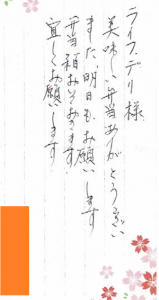 ライフデリ様
美味しい弁当ありがとうござい
ます、明日もお願いします
弁当箱おいておきます。
宜しくお願いします